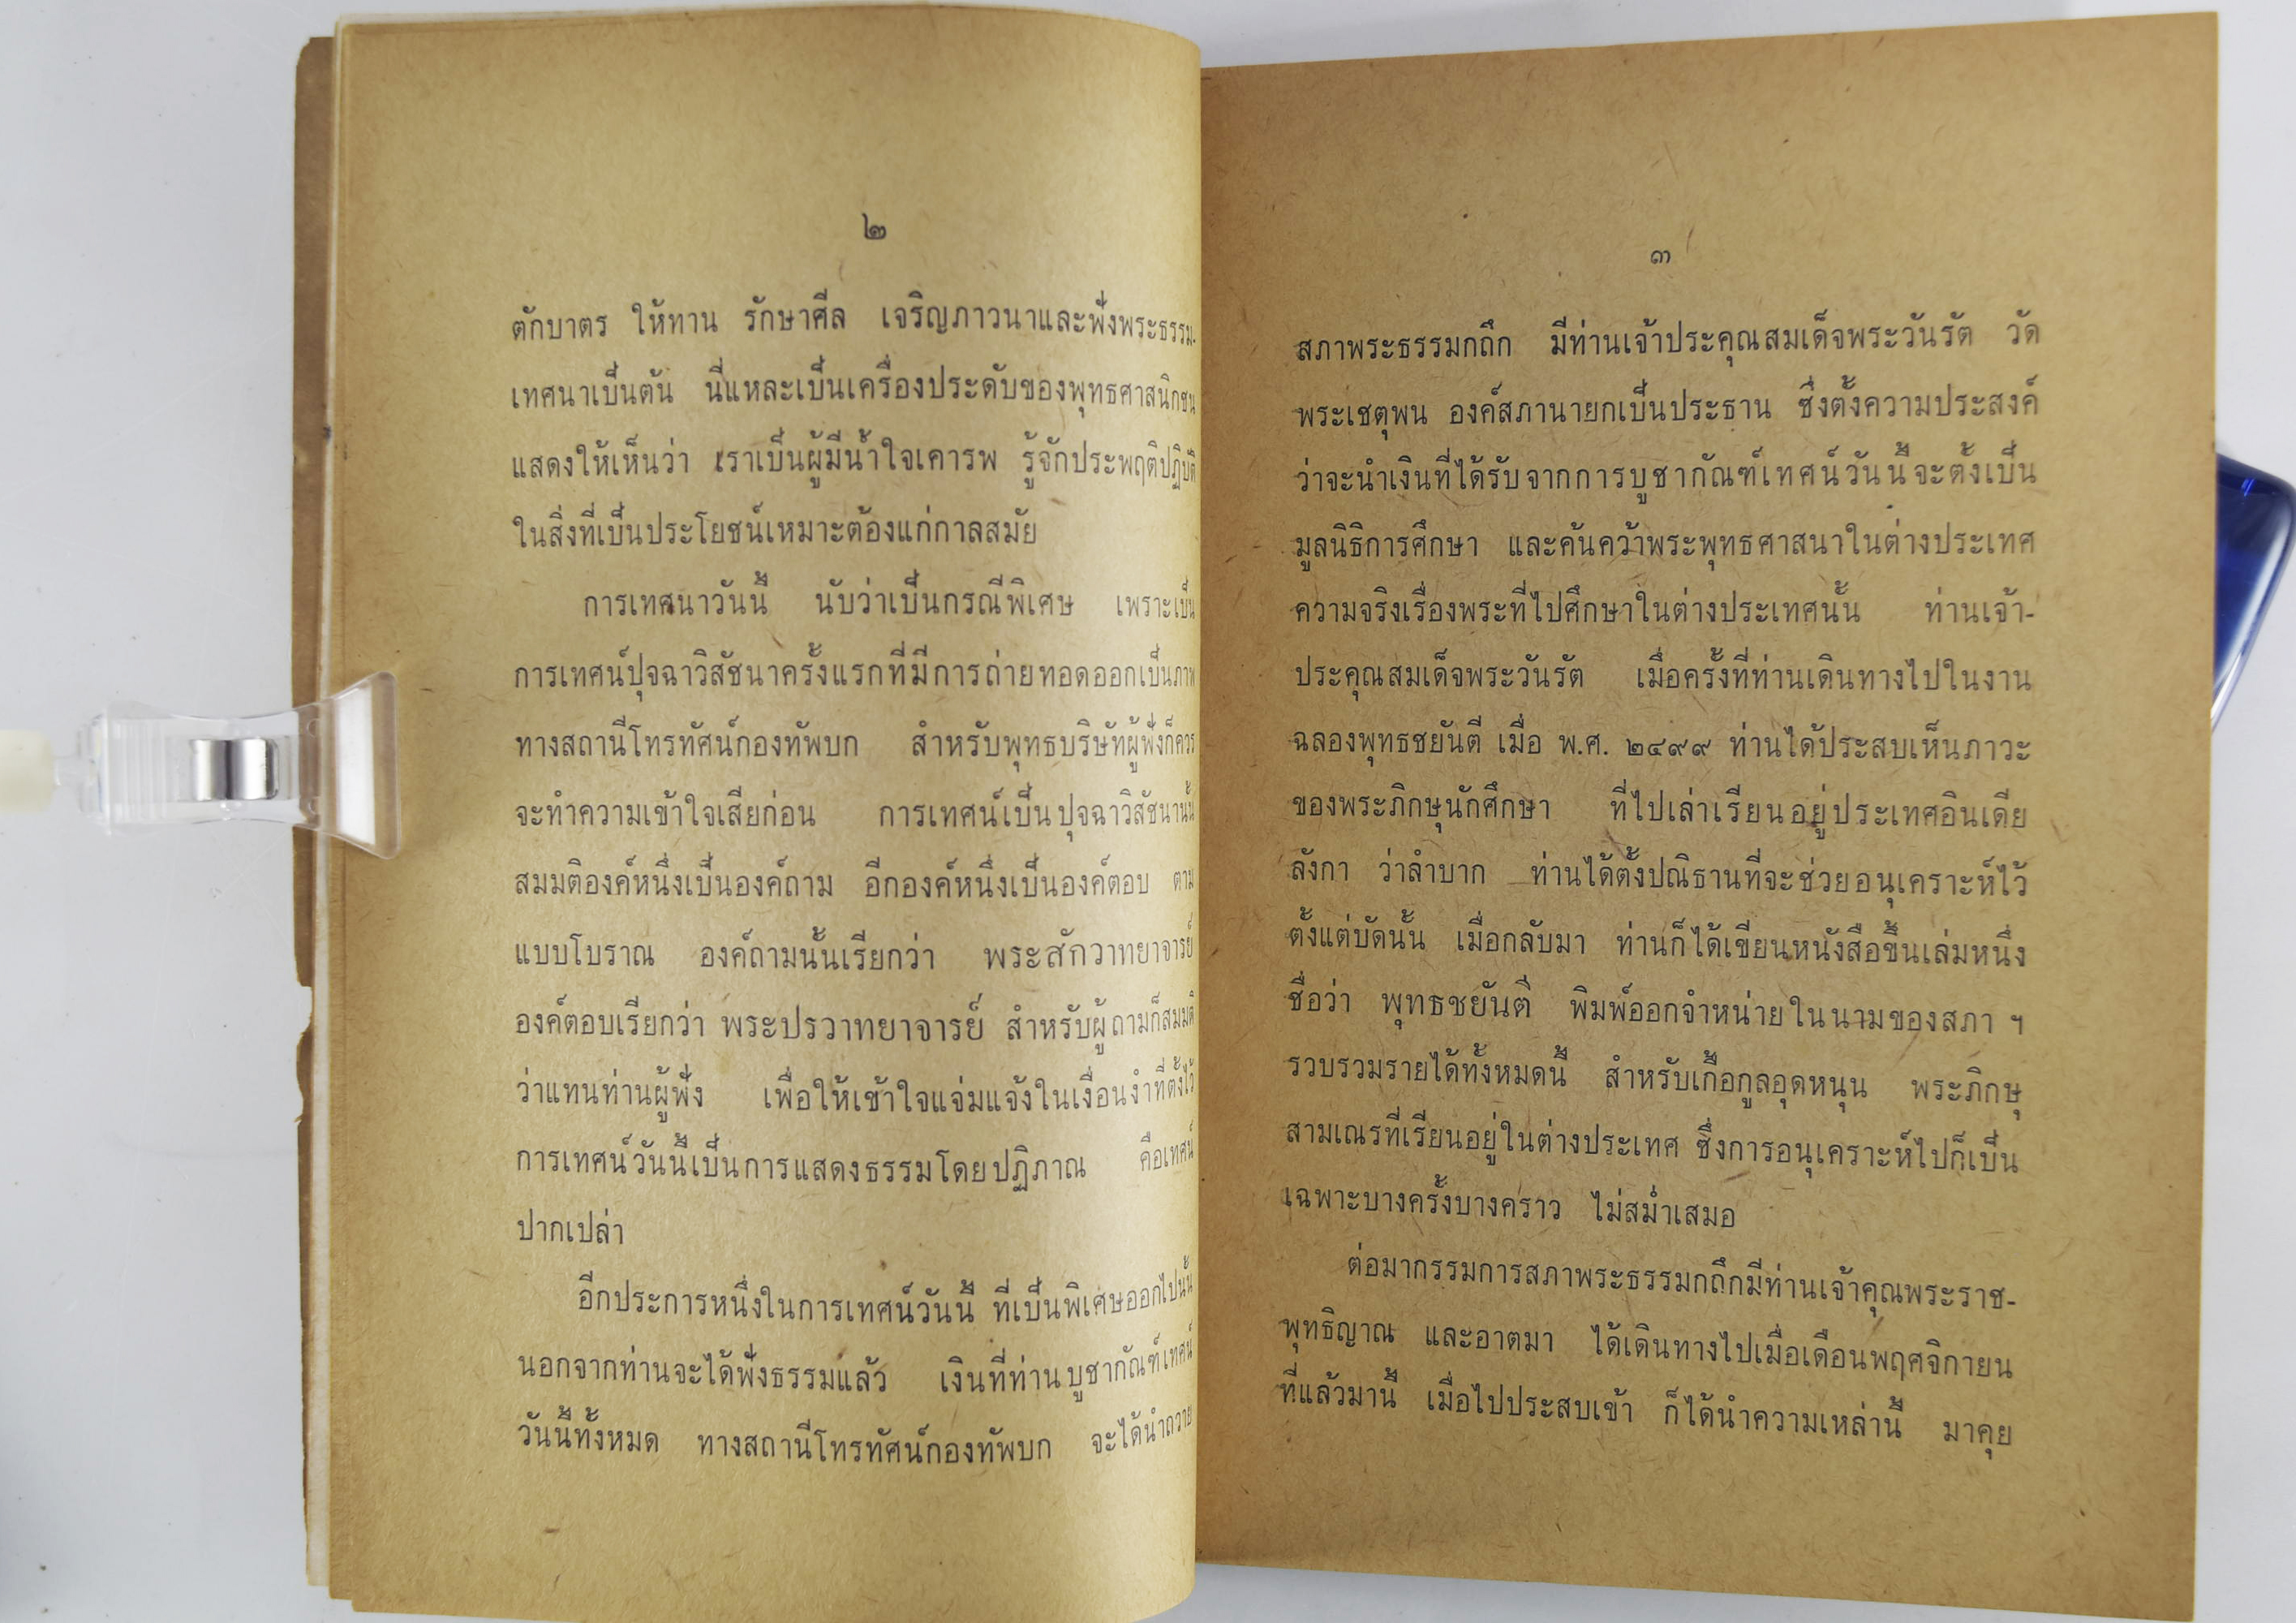 ๒
ตักบาตร ให้ทาน รักษาศีล เจริญภาวนาและฟังพระธรรม-
เทศนาเป็นต้น นี่แหละเป็นเครื่องประดับของพุทธศาสนิกชน
แสดงให้เห็นว่า เราเป็นผู้มีน้ำใจเคารพ รู้จักประพฤติปฏิบัติ
ในสิ่งที่เป็นประโยชน์เหมาะต้องแก่กาลสมัย
การเทศนาวันนี้ นับว่าเป็นกรณีพิเศษ เพราะเป็น
การเทศน์ปุจฉาวิสัชนาครั้งแรกที่มีการถ่ายทอดออกเป็นภาพ
ทางสถานีโทรทัศน์กองทัพบก สำหรับพุทธบริษัทผู้ฟังก็ควร
จะทำความเข้าใจเสียก่อน การเทศน์เป็นปุจฉาวิสัชนานั้น
สมมติองค์หนึ่งเป็นองค์ถาม อีกองค์หนึ่งเป็นองค์ตอบ ตาม
แบบโบราณ องค์ถามนั้นเรียกว่า พระสักวาทยาจารย์
องค์ตอบเรียกว่า พระปรวาทยาจารย์ สำหรับผู้ถามก็สมมติ
ว่าแทนท่านผู้ฟัง เพื่อให้เข้าใจแจ่มแจ้งในเงื่อนงำที่ตั้งไว้
การเทศน์วันนี้เป็นการแสดงธรรมโดยปฏิภาณ คือเทศน์
ปากเปล่า
อีกประการหนึ่งในการเทศน์วันนี้ ที่เป็นพิเศษออกไปนั้น
นอกจากท่านจะได้ฟังธรรมแล้ว เงินที่ท่านบูชากัณฑ์เทศน์
วันนี้ทั้งหมด ทางสถานีโทรทัศน์กองทัพบก จะได้นำถวาย
๓
สภาพระธรรมกถึก มีท่านเจ้าประคุณสมเด็จพระวันรัต วัด
พระเชตุพน องค์สภานายกเป็นประธาน ซึ่งตั้งความประสงค์
ว่าจะนำเงินที่ได้รับจากการบูชากัณฑ์เทศน์วันนี้จะตั้งเป็น
มูลนิธิการศึกษา และค้นคว้าพระพุทธศาสนาในต่างประเทศ
ความจริงเรื่องพระที่ไปศึกษาในต่างประเทศนั้น ท่านเจ้า-
ประคุณสมเด็จพระวันรัต เมื่อครั้งที่ท่านเดินทางไปในงาน
ฉลองพุทธชยันตี เมื่อ พ.ศ. ๒๔๙๙ ท่านได้ประสบเห็นภาวะ
ของพระภิกษุนักศึกษา ที่ไปเล่าเรียนอยู่ประเทศอินเดีย
ลังกา ว่าลำบาก ท่านได้ตั้งปณิธานที่จะช่วยอนุเคราะห์ไว้
ตั้งแต่บัดนั้น เมื่อกลับมา ท่านก็ได้เขียนหนังสือขึ้นเล่มหนึ่ง
ชื่อว่า พุทธชยันตี พิมพ์ออกจำหน่ายในนามของสภา ฯ
รวบรวมรายได้ทั้งหมดนี้ สำหรับเกื้อกูลอุดหนุน พระภิกษุ
สามเณรที่เรียนอยู่ในต่างประเทศ ซึ่งการอนุเคราะห์ไปก็เป็น
เฉพาะบางครั้งบางคราว ไม่สม่ำเสมอ
ต่อมากรรมการสภาพระธรรมกถึกมีท่านเจ้าคุณพระราช-
พุทธิญาณ และอาตมา ได้เดินทางไปเมื่อเดือนพฤศจิกายน
ที่แล้วมานี้ เมื่อไปประสบเข้า ก็ได้นำความเหล่านี้ มาคุย